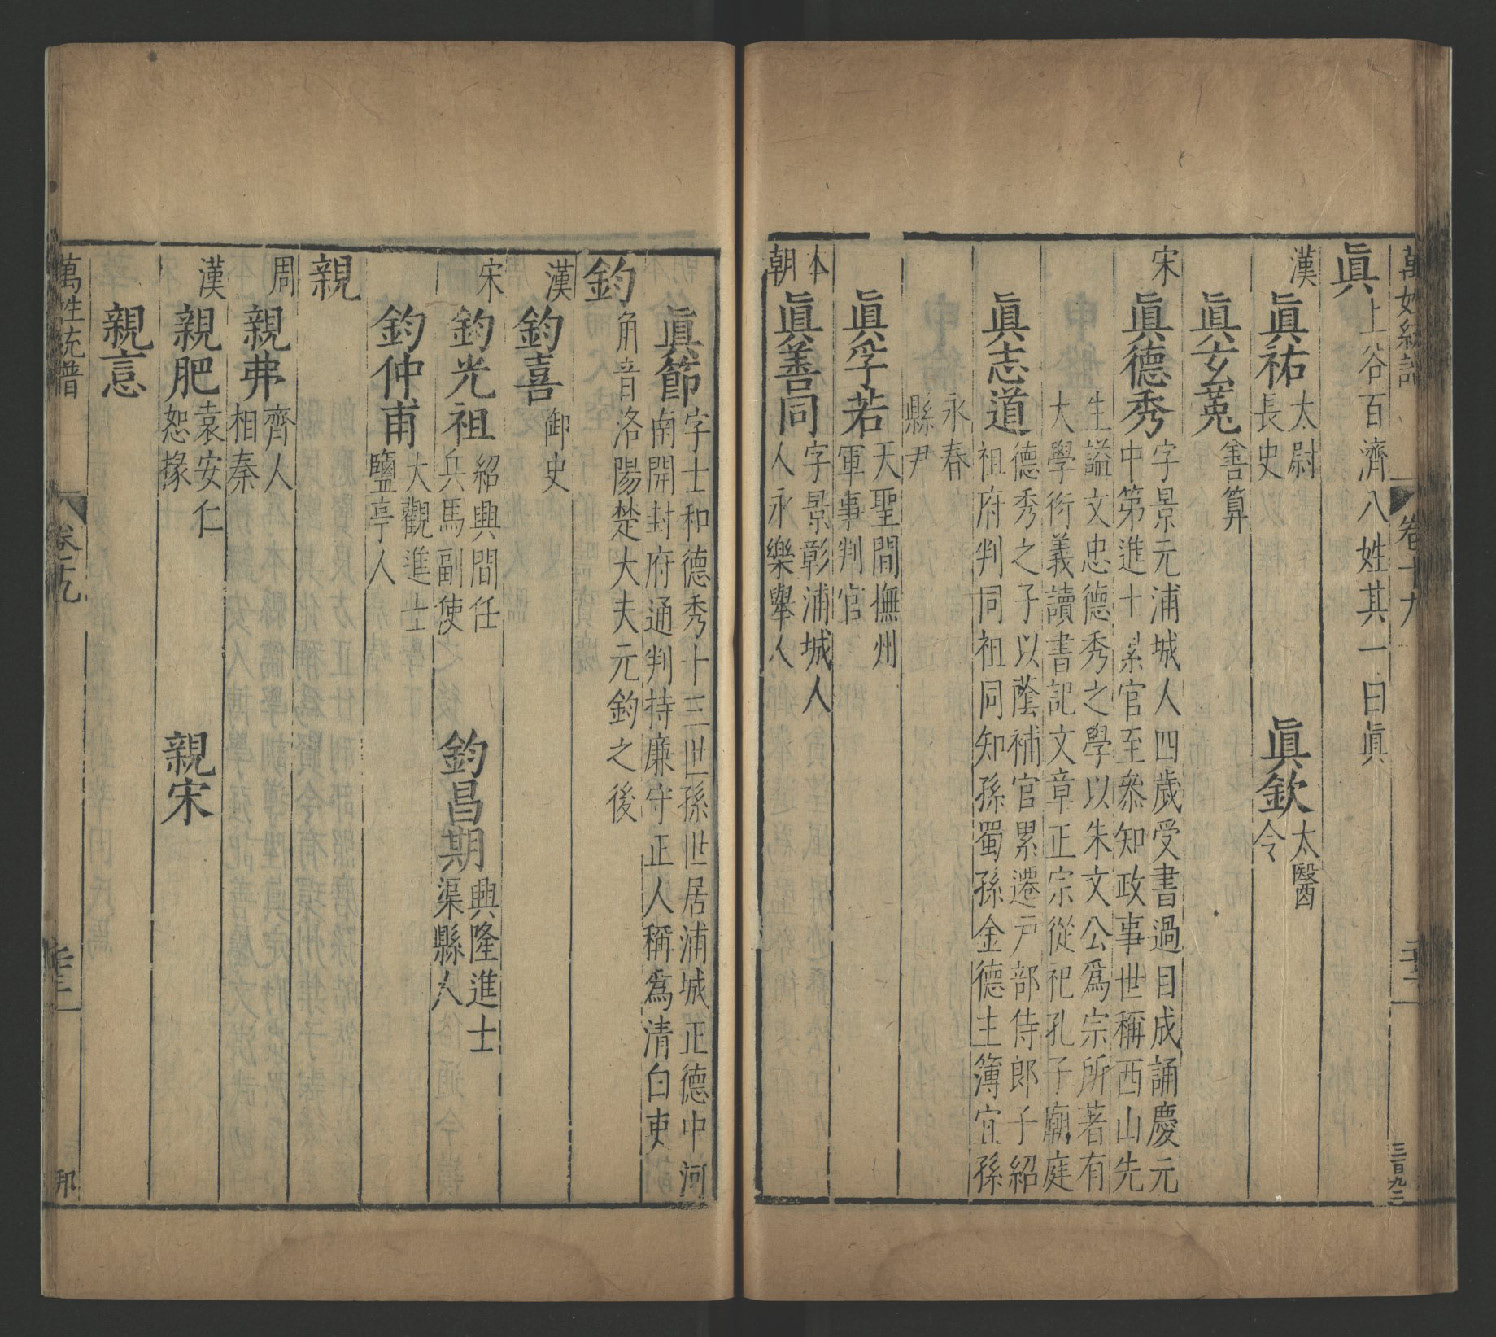 萬姓統譜 卷十九
眞 上谷百濟八姓其一曰眞
漢 眞祐 太尉長史 眞欽 太醫令
眞玄菟 善算
宋 眞德秀 字景元浦城人四歲受書過目成誦慶元
中第進士累官至參知政事世稱西山先
生謚文忠德秀之學以朱文公爲宗所著有
大學衍義讀書記文章正宗從祀孔子廟庭
眞志道 德秀之子以蔭補官累遷戸部侍郎子紹
祖府判同祖同知孫蜀孫金德主簿宜孫
永春縣尹
眞孚若 天聖間撫州軍事判官
本朝 眞善同 字景彰浦城人永樂舉人
眞節 字士和德秀十三世孫世居浦城正德中河
南開封府通判持廉守正人稱爲清白吏
鈞 角音洛陽楚大夫元鈞之後
漢 鈞喜 御史
宋 鈞光祖 紹興間任兵馬副使 鈞昌期 興隆進士渠縣人
鈞仲甫 大觀進士鹽亭人
親
周 親弗 齊人相秦
漢 親肥 袁安仁恕掾 親宋
親意
萬姓統譜 卷十九